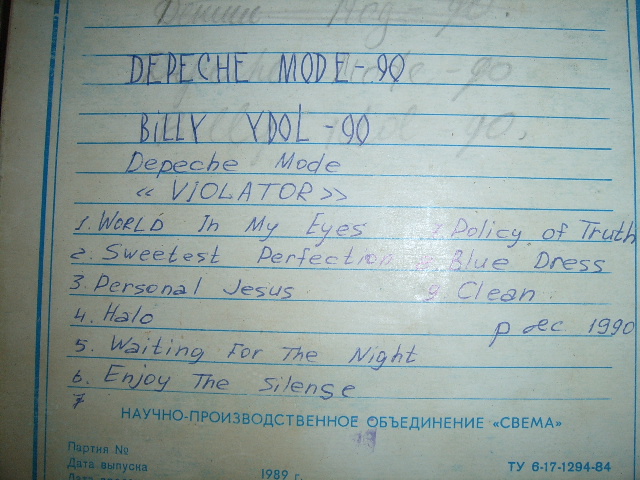 DEPECHE MODE-90
BILLY YDOL-90
Depeche Mode
«VIOLATOR»
1. WORLD In My Eyes
2. Sweetest Perfection
3. Personal Jesus
4. Halo
5. Waiting For The Night
6. Enjoy The Silense
7
7 Policy of Truth
8 Blue Dress
9 Clean
1990
НАУЧНО-ПРОИЗВОДСТВЕННОЕ ОБЪЕДИНЕНИЕ «СВЕМА»
Партия №
Дата выпуска
1989 г.
ТУ 6-17-1294-84